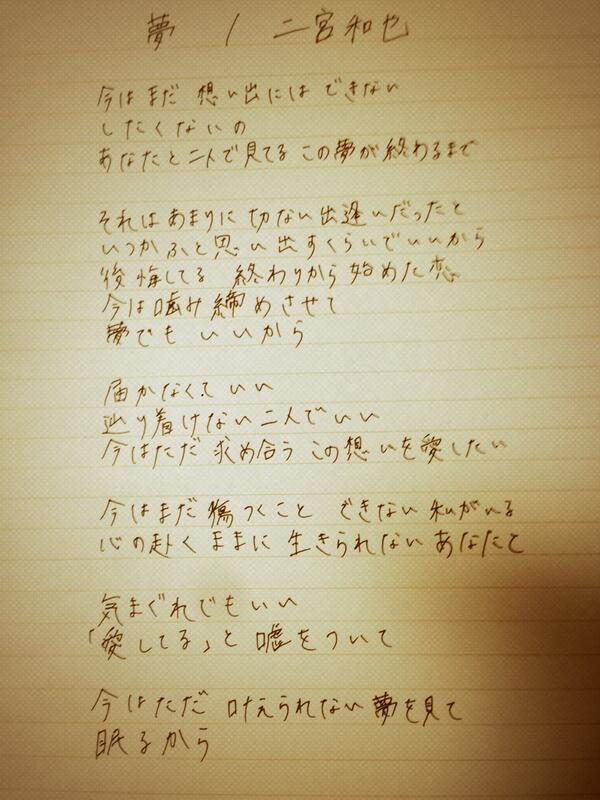 夢 / 二宮和也
今はまだ 想い出には できない
したくないの
あなたと二人で見てる この夢が終わるまで
それはあまりに 切ない出逢いだったと
いつかふと思い出すくらいでいいから
後悔してる 終わりから始めた恋
今は噛み締めさせて
夢でも いいから
届かなくていい
辿り着けない二人でいい
今はただ 求め合う この想いを愛したい
今はまだ 傷つくこと できない 私がいる
心の赴くままに 生きられない あなたと
気まぐれでもいい
「愛してる」と 嘘をついて
今はただ 叶えられない 夢を見て
眠るから